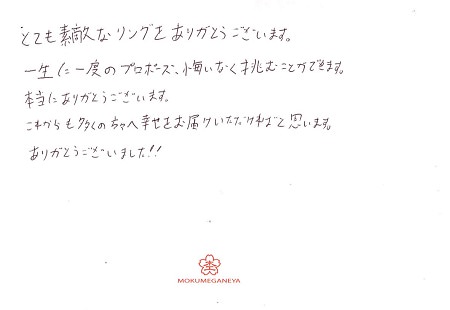 とても素敵なリングをありがとうございます。
一生に一度のプロポーズ、悔いなく挑むことができます。
本当にありがとうございます。
これからも多くの方へ幸せをお届けいただければと思います。
ありがとうございました!!
MOKUMEGANEYA